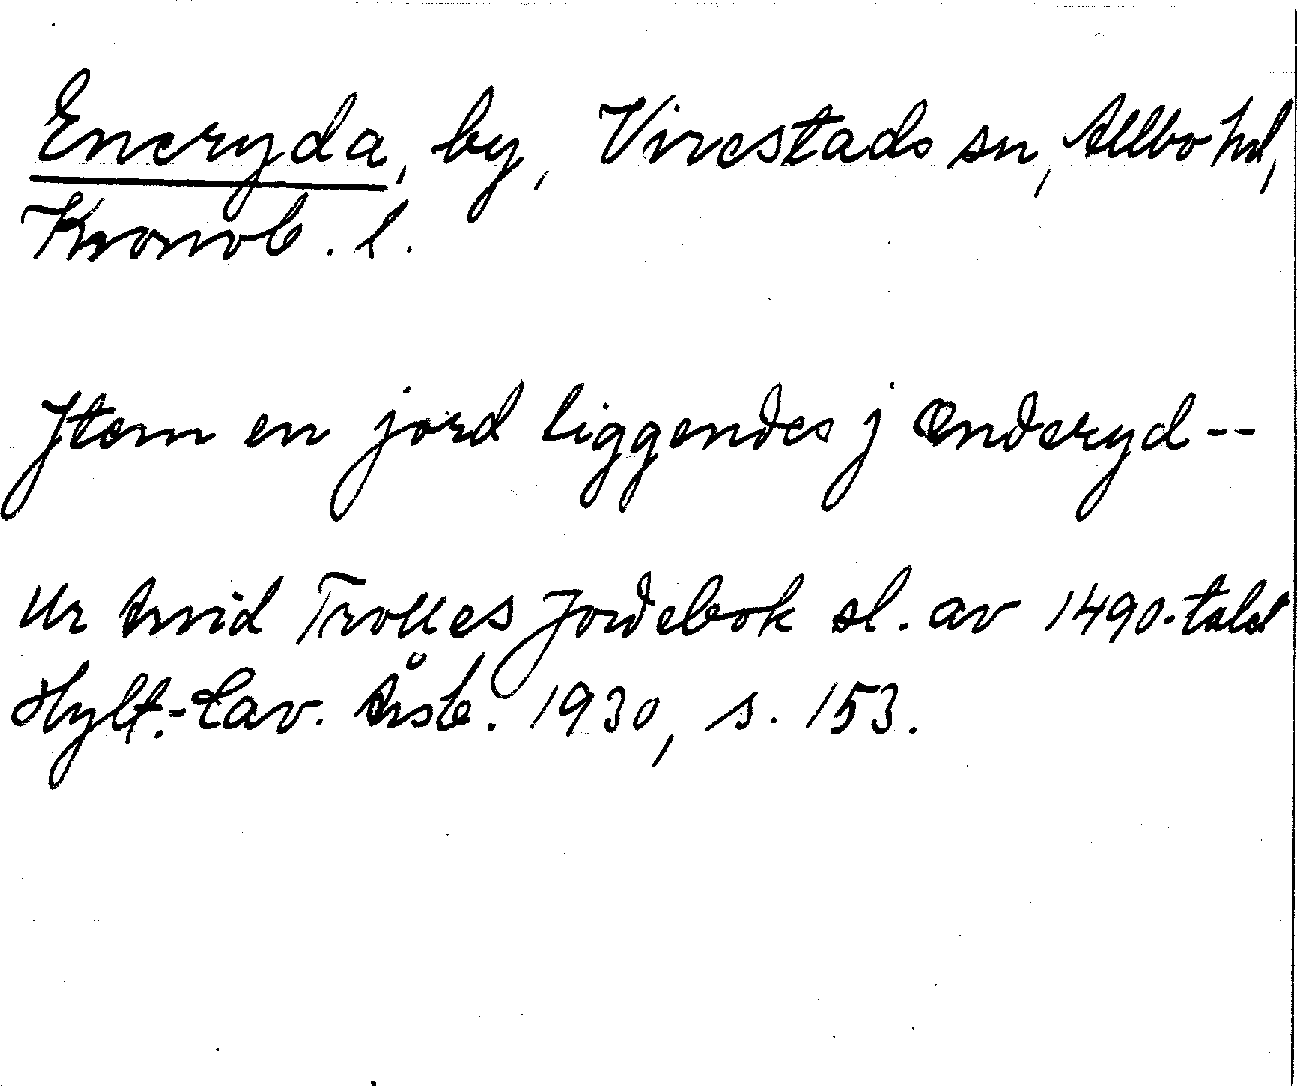 Eneryda, by, Virestads sn, Allbo hd,
Kronob. l.
Jtem en jord liggendes j Ænderyd --
Ur Arvid Trolles Jordebok sl. av 1490-talet
Hylt.-Cav. Årsb. 1930, s. 153.